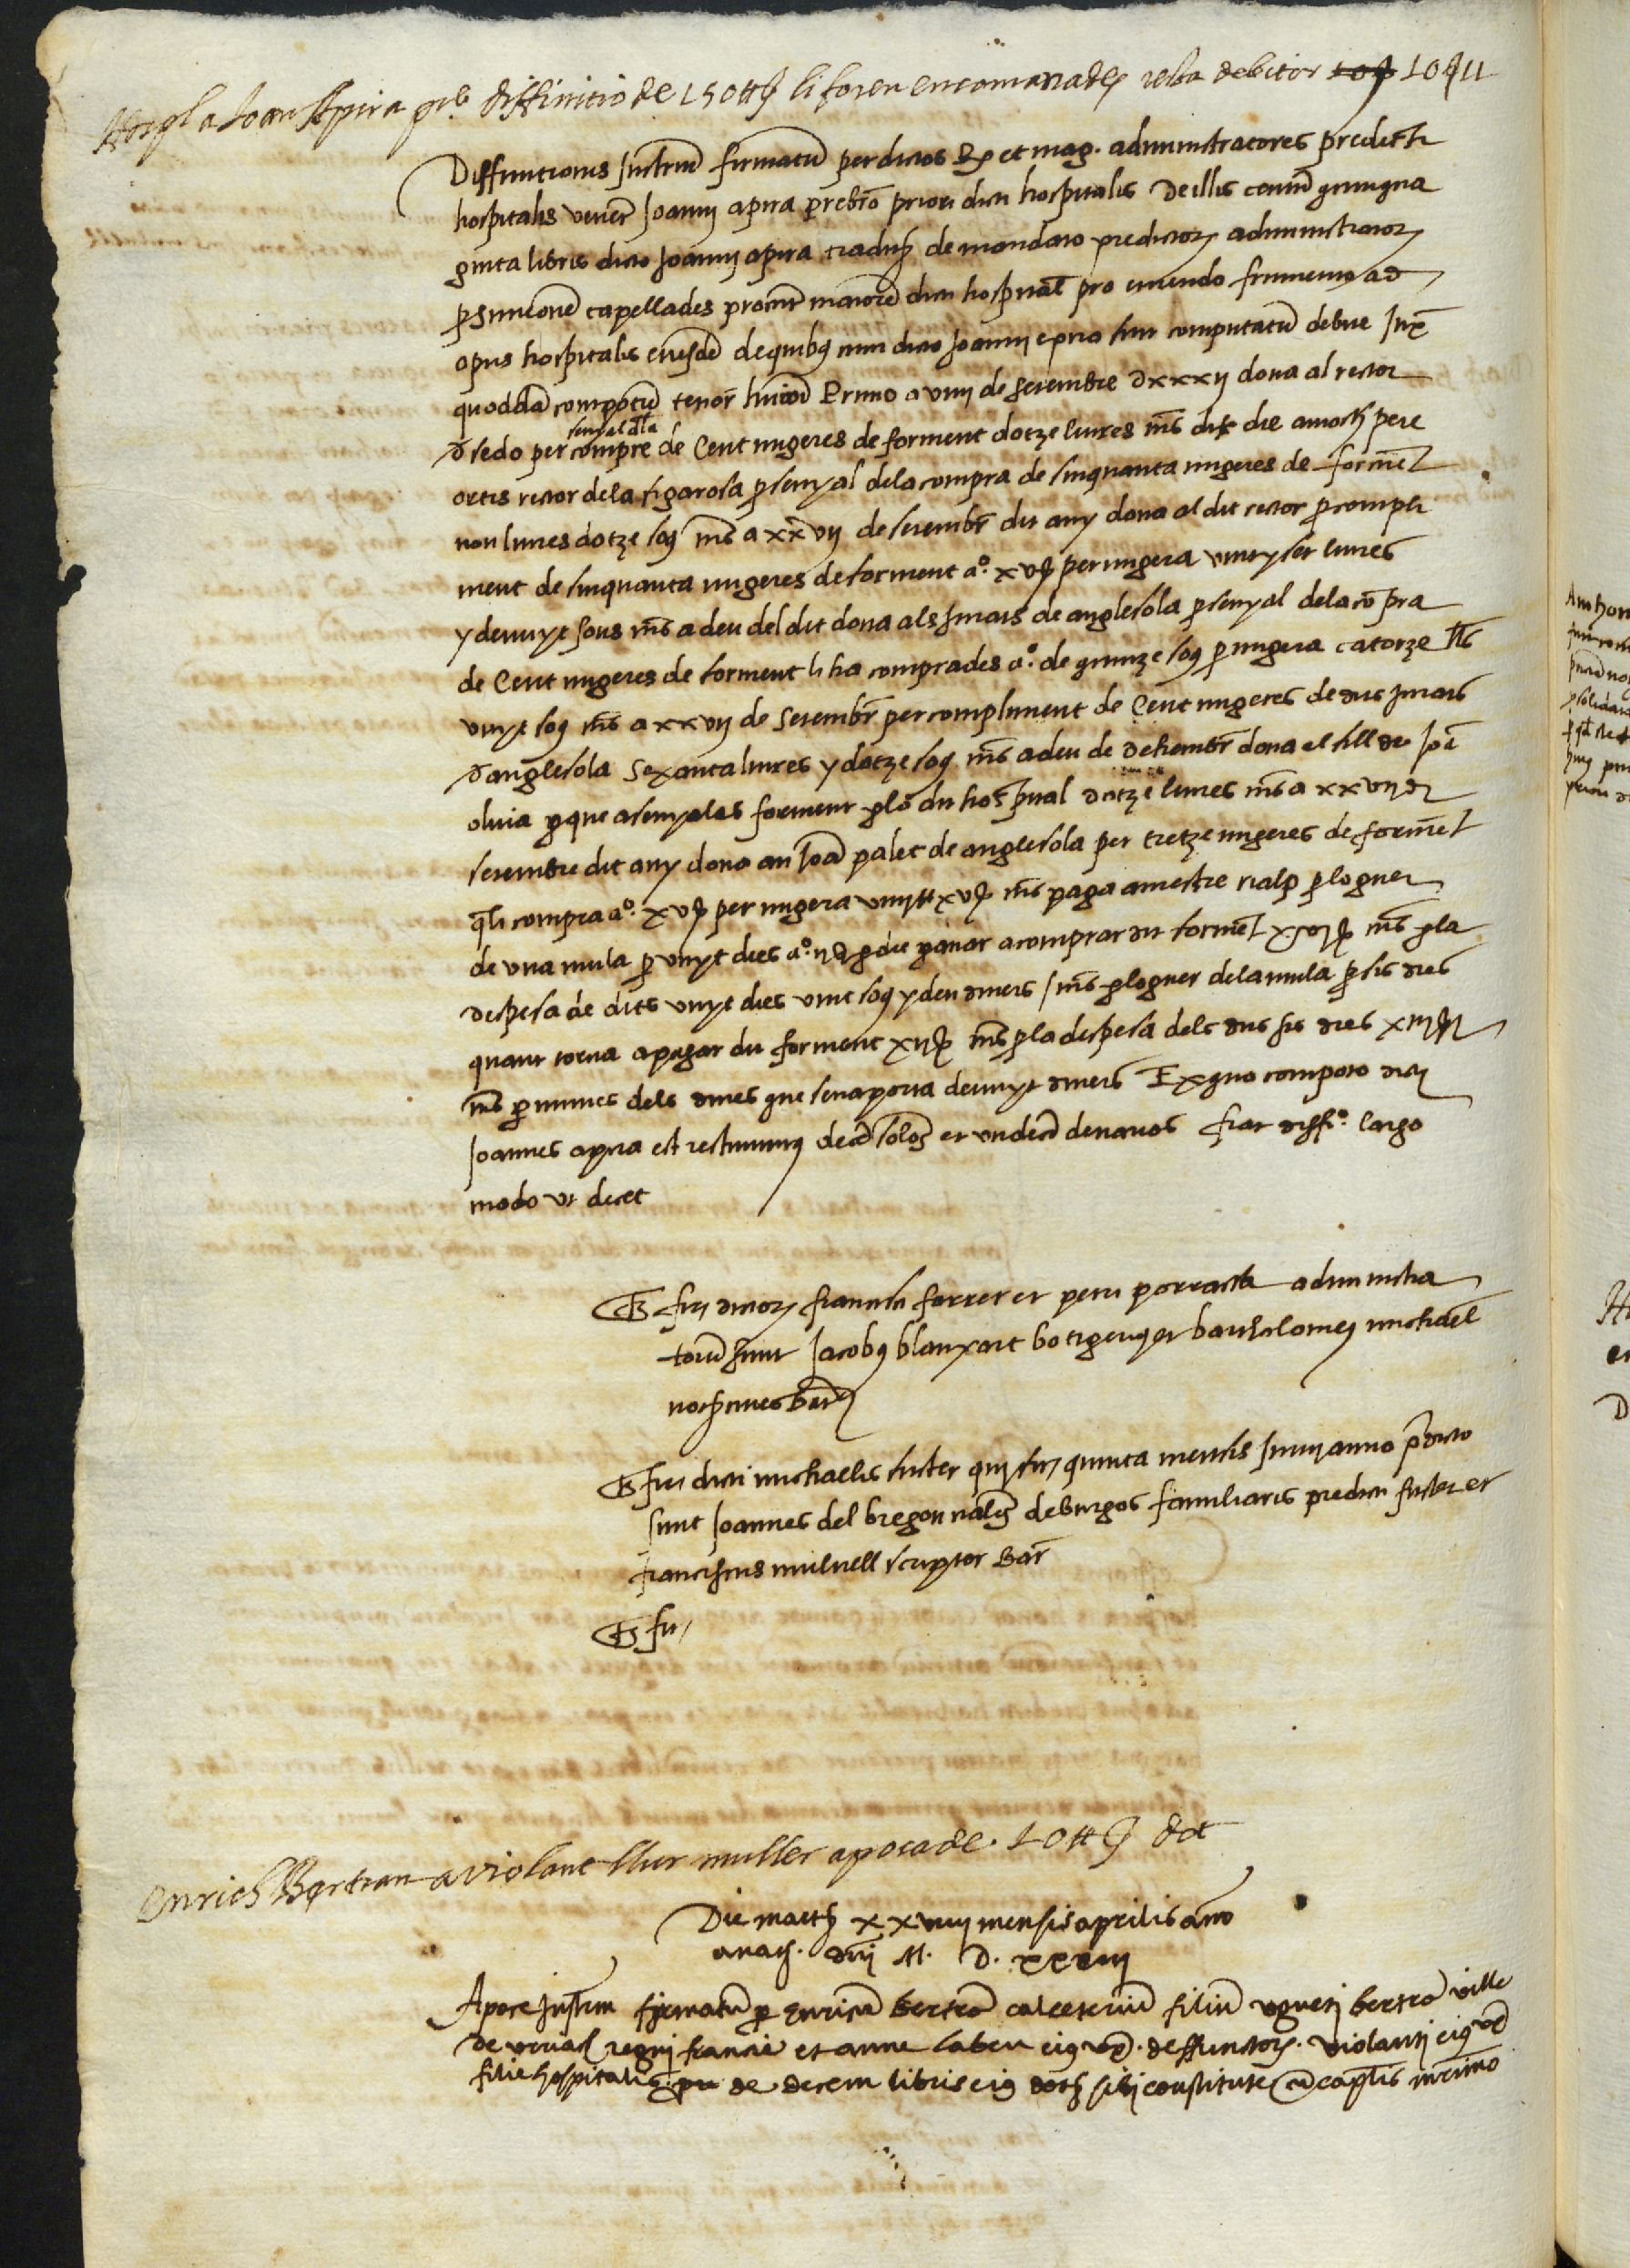 Hospl a Joan Apira prb. diffinitio de 150 ll s li foren encomanades resta debitor 10 s 10 s 11
Diffinitionis Instrum firmatum per dictos R et mag. administratores predicti
hospitalis vener Joanni apira prebro priori dicti hospitalis de illis centum quinqua
ginta libris dicto Joanni apira traditis de mandato predictor administrator
p Simeonem capellades procur maiorem dicti hospital pro emendo frumento ad
opus hospitalis eiusdem de quibus cum dicto Joanni apira fuit computatum debite Iux
quoddam compotum tenor huiusmodi Primo a viiij de setembre dxxxij dona al rector
d sedo per senyal dla compre de Cent migeres de forment dotze liures mes dit die a mosn pere
ortis rector de la figarosa p senyal de la compra de sinquanta migeres de forment
nou liures dotze sous mes a xxvij de setembr dit any dona al dit rector p compli
ment de sinquanta migeres de forment a°. xvj s per migera vint y set liures
y denuyt sous mes a deu del dit dona als jurats de anglesola p senyal dela compra
de Cent migeres de forment li ha comprades a°. de quinze sous p migera catorze lls
vuyt sous mes a xxvij de Setembr per compliment de Cent migeres de dits jurats
d anglesola Sexanta liures y dotze sous mes a deu de dehembr dona el fill de Joa
oliua p que asenyalas forment p lo dit hospital dotze liures mes a xxvij d
setembre dit any dona an Joa palet de anglesola per tretze migeres de forment
q li compra a°. xvj s per migera viiij ll xvj s mes paga a mestre rialp p loguer
de vna mula p vuyt dies a°. ij s p die p anar a comprar dit forment xvj s mes p la
despesa de dits vuyt dies vint sous y deu diners / mes p loguer dela mula p sis dies
quant torna a pagar dit forment xij s mes p la despesa dels dits sis dies xiij s
mes p minues dels dines que senaporta denuyt diners Ex quo compoto dict
Joannes apira est restituturus decem solos et undecim denarios fiat diff°. largo
modo ut decet
Ts fir dictor francisci ferrer et petri porrassa administra
torum sunt Jacobus blanxart botigerius et bartholomeus michael
nots ciues Barn
Ts fir dicti michaelis fuster qui fir quinta mensis Junij anno predicto
sunt Joannes del bregon nales de burgos familiaris predicti fuster et
franciscus mulnell scriptor Barn
Ts fir
Enrich Bertran a violant llur muller apoca de 10 ll s dot
Die martis xxviiij mensis aprilis anno
a natj. dnj M. D. xxxiij
Apoce Instrum firmatum p Enricum bertran calceterium filium ugueti bertran ville
de regni francie et anne eius vx. deffunctor. violanti eius vx
filie hospitalis de decem libris eius dotis sibi constitute cum caplis mrimo